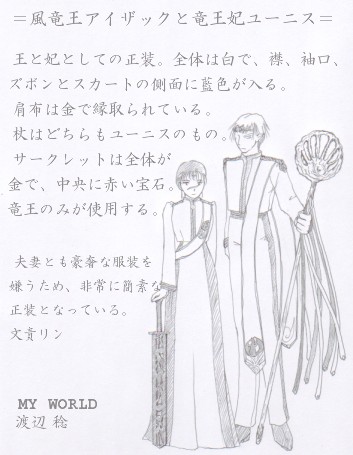 ＝風竜王アイザックと竜王妃ユーニス＝
王と妃としての正装。全体は白で、襟、袖口、
ズボンとスカートの側面に藍色が入る。
肩布は金で縁取られている。
杖はどちらもユーニスのもの。
サークレットは全体が
金で、中央に赤い宝石。
竜王のみが使用する。
夫妻とも豪奢な服装を
嫌うため、非常に簡素な
正装となっている。
文貴リン
MY WORLD
渡辺 稔